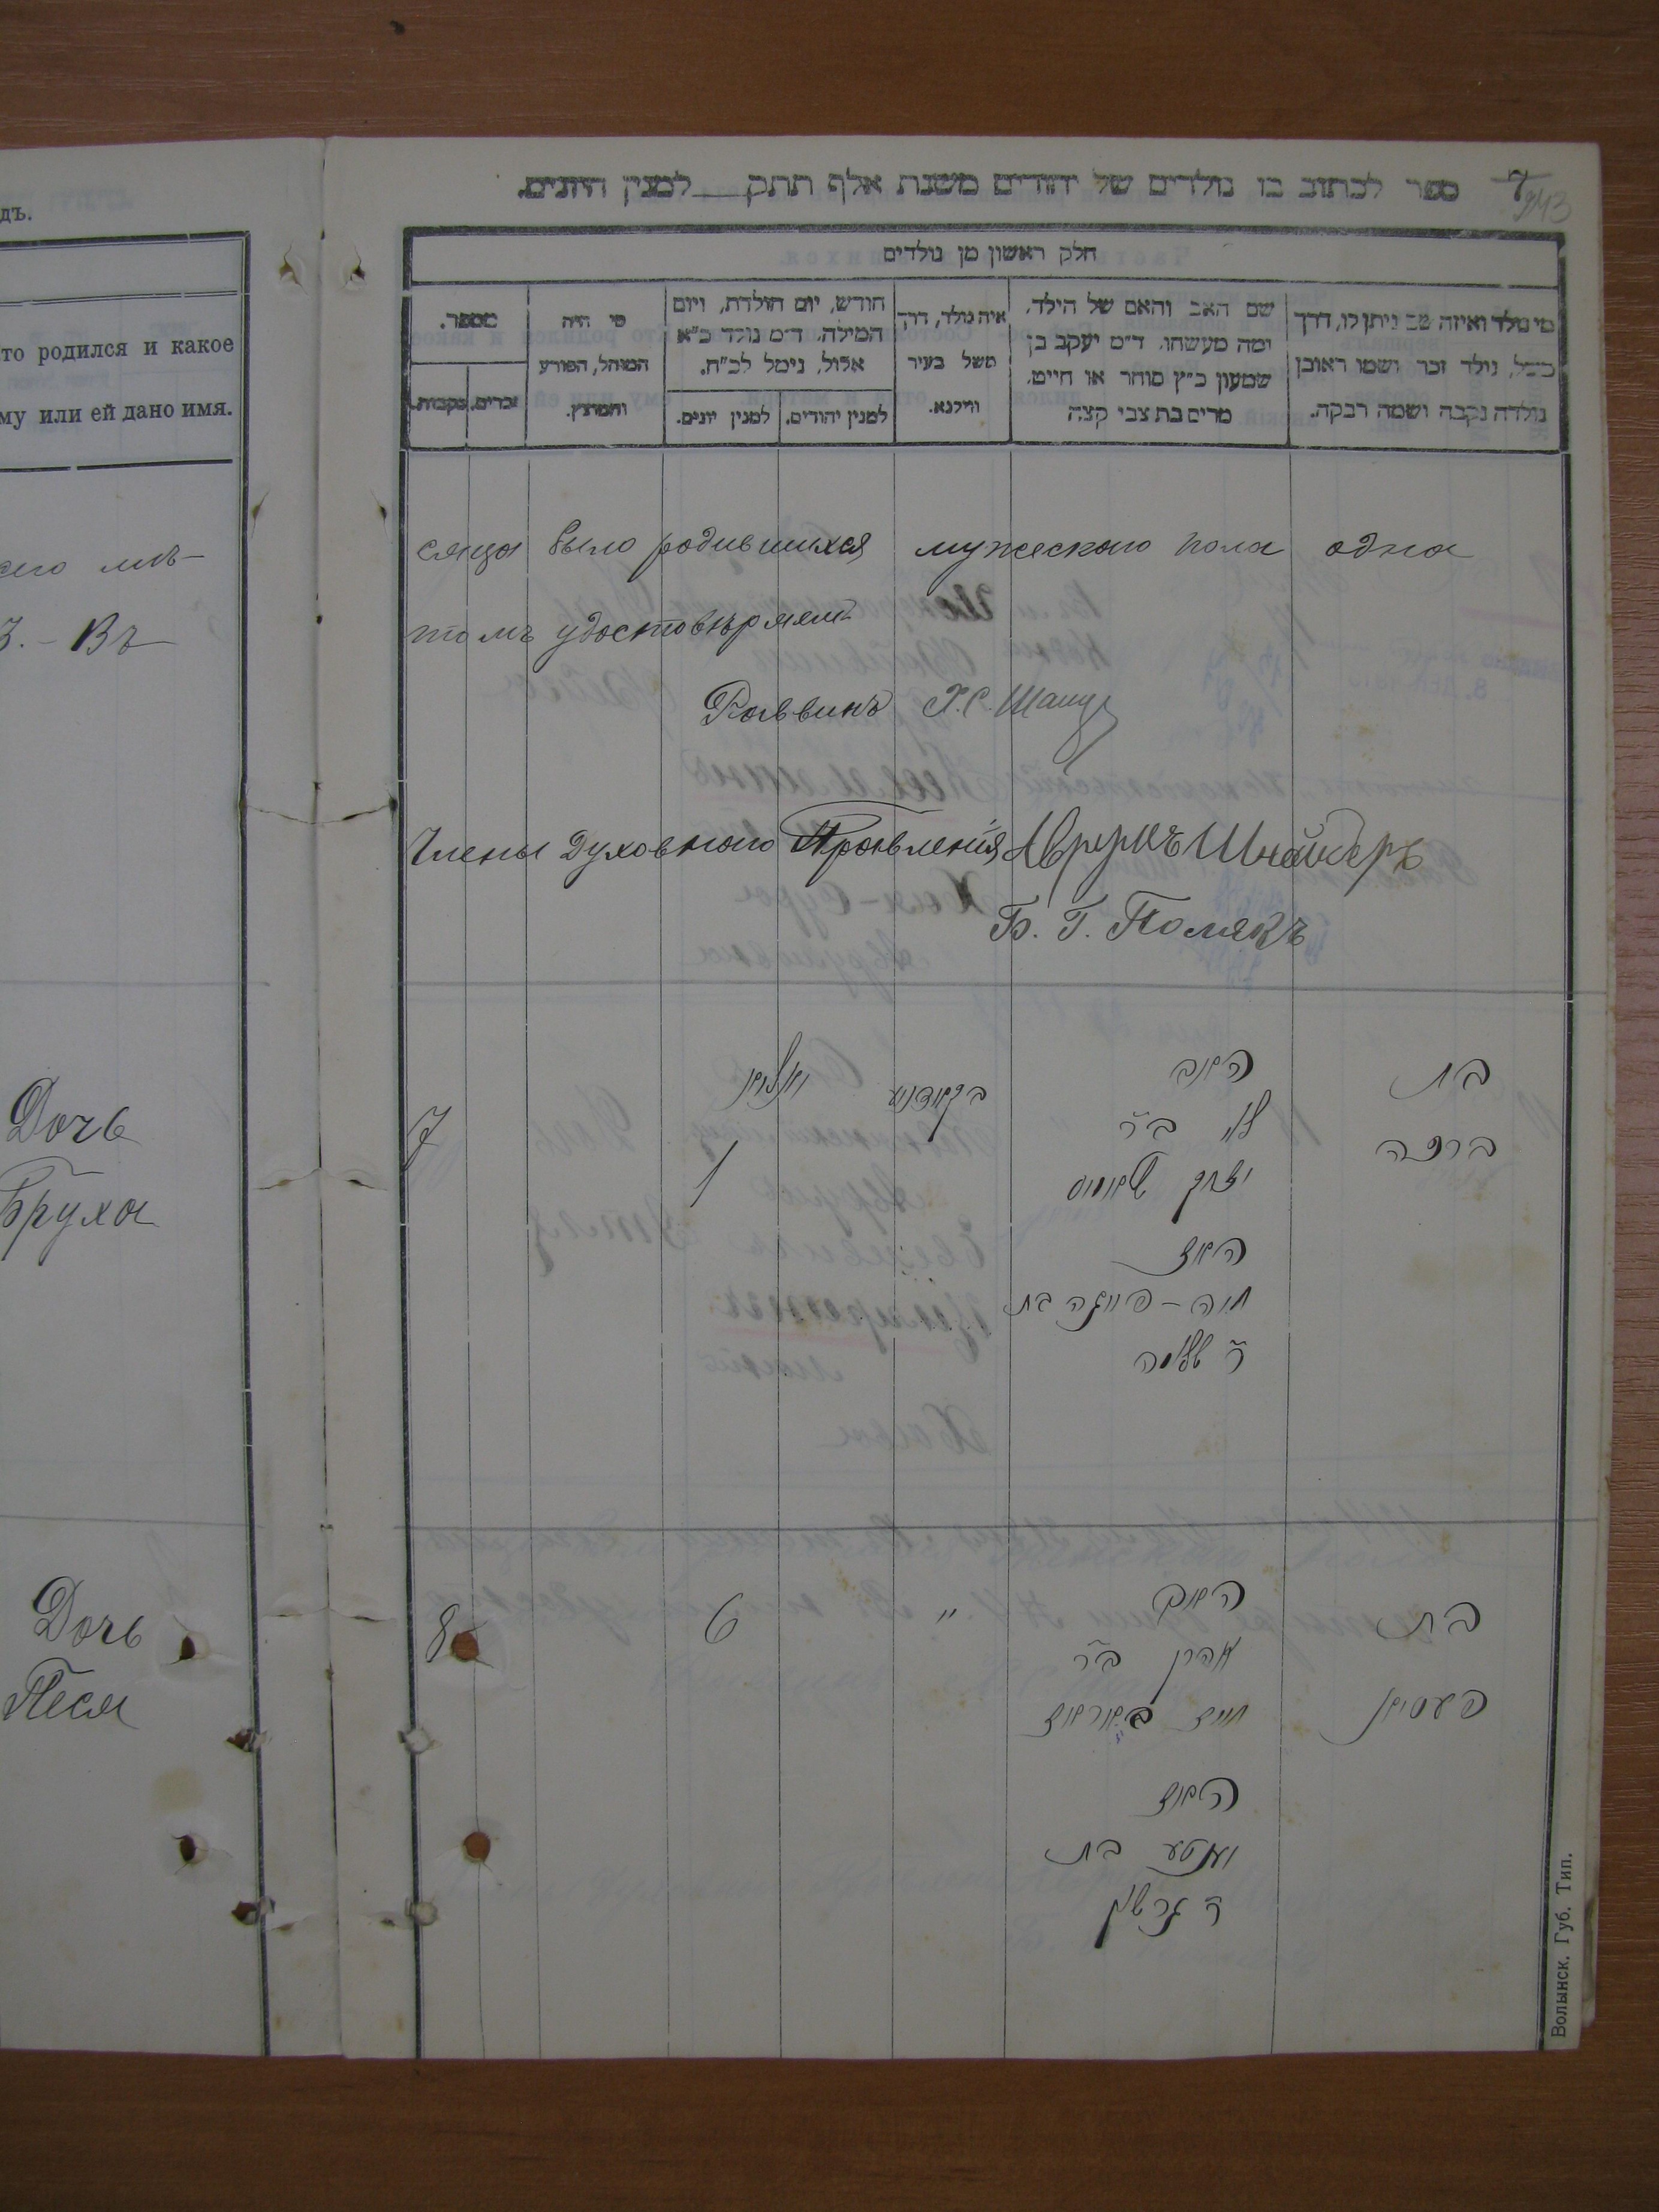 дъ.
то родился и какое
му или ей дано имя.
сего мѣ-
З. – Въ
Дочь
Бруха
Дочь
Песя
ספר לכתוב בו נולדים של יהודים משנת אלף תתק___למנין היונים.
7
243
חלק ראשון מן נולדים
מי נולד ואיזה שם ניתן לו, דרך משל, נולד זכר ושמו ראובן נולדה נקבה ושמה רבקה.
שם האב והאם של הילד, ומה מעשהו. ד״מ יעקב בן שמעון כ״ץ סוחר או חייט, מרים בת צבי קצה
איה נולד, דרך משל בעיר ווילנא.
חודש, יום הולדת, ויום המילה. ד״מ נולד כ״א אלול, נימל לכ״ח.
למנין יהודים.
למנין יונים.
מי היה המוהל, הפורע והמוצץ.
מספר.
זכרים.
נקבות.
сяца было родившихся мужескаго пола одна
томъ удостовѣряемъ
Раввинъ Х. С.
Члены Духовнаго Правленія Аврумъ Шнайдеръ
Б. Г. Полякъ
בת
ברכה
האב
לוי ב״ר
יצחק
האם
חוה – פייגה בת
ר׳ שלמה
1
7
בת
פעסיא
האב
אהרן ב״ר
חיים
האם
יענטע בת
ר׳ גרשון
״
6
8
Волынск. Губ. Тип.